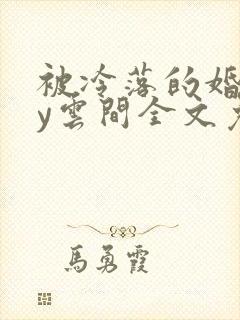 被冷落的婚
y雲間全文
馬勇霞